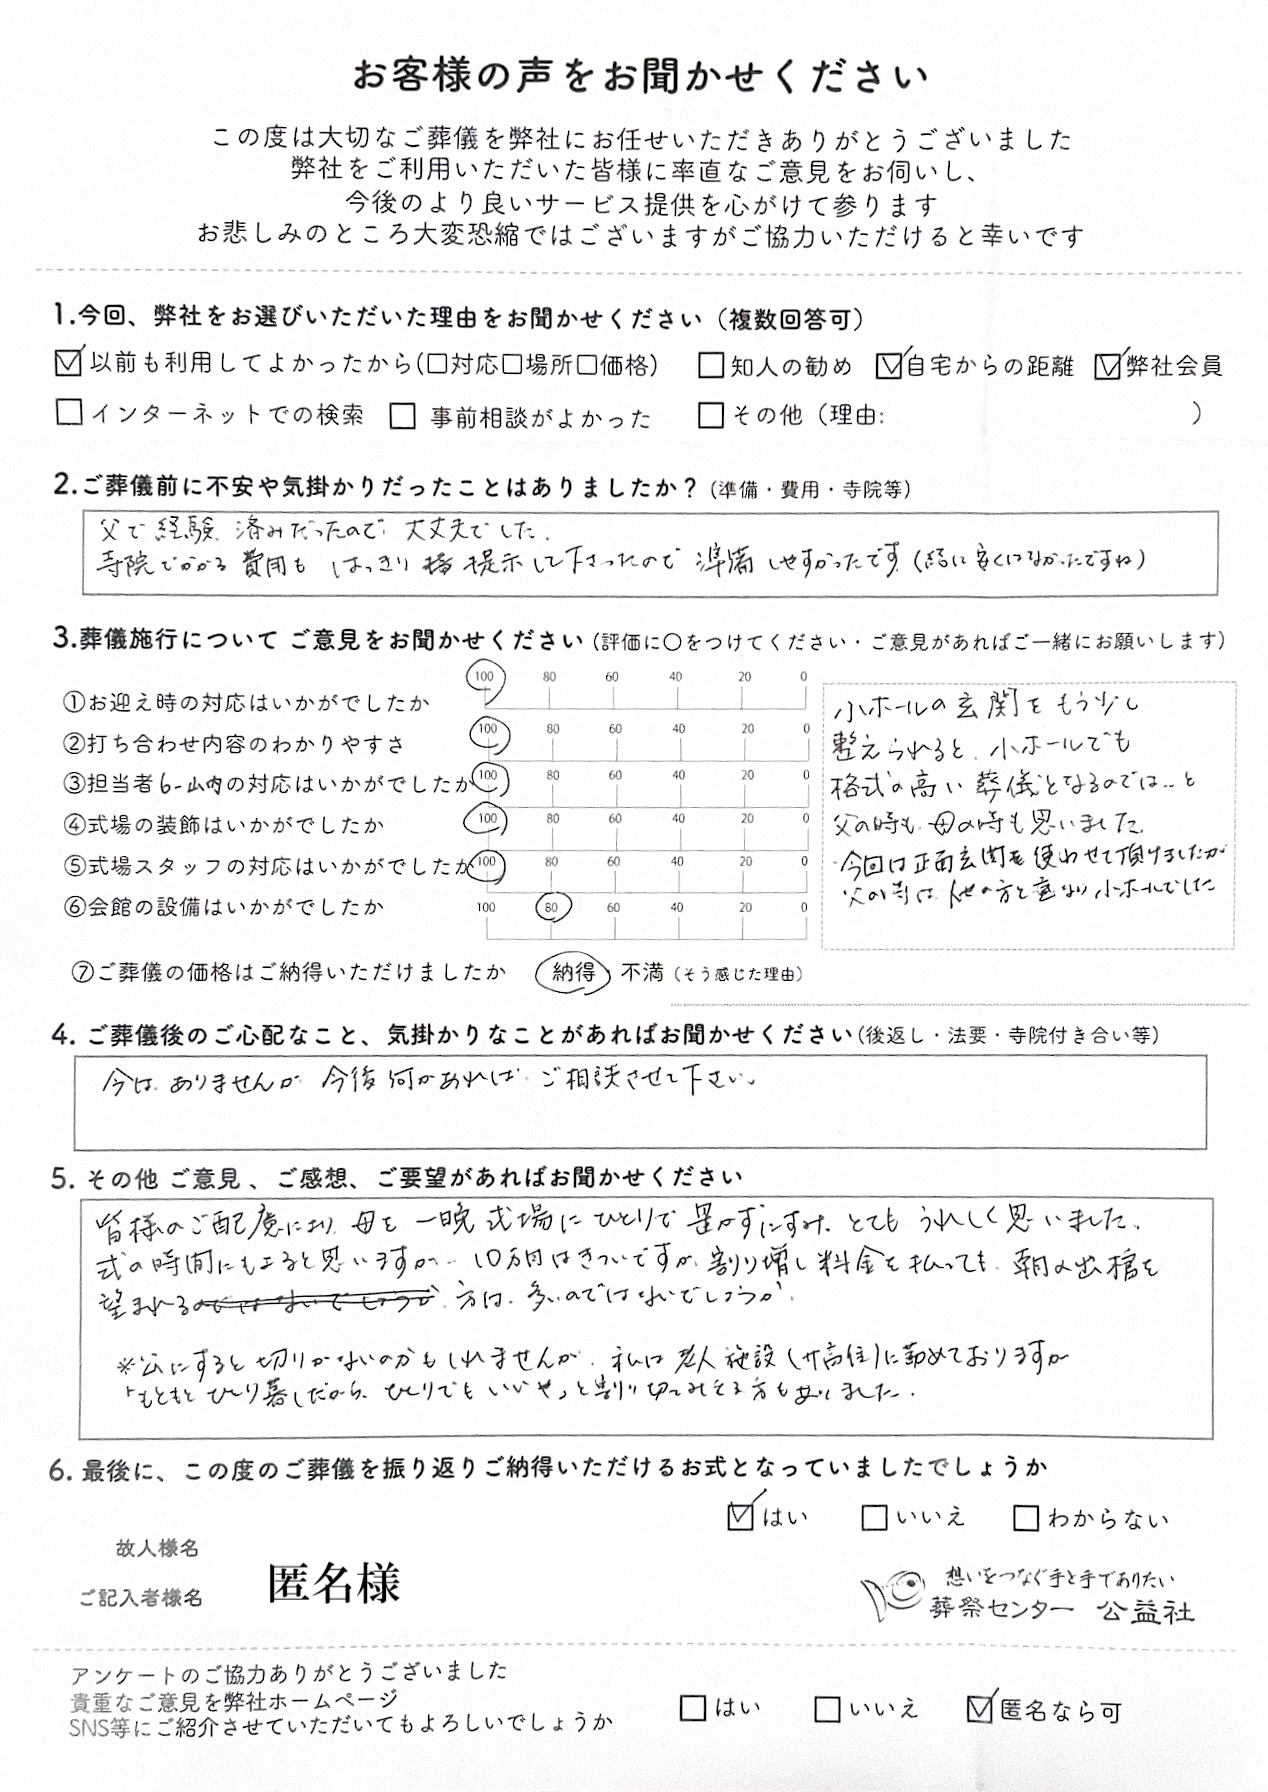 お客様の声をお聞かせください
この度は大切なご葬儀を弊社にお任せいただきありがとうございました
弊社をご利用いただいた皆様に率直なご意見をお伺いし、
今後のより良いサービス提供を心がけて参ります
お悲しみのところ大変恐縮ではございますがご協力いただけると幸いです
1.今回、弊社をお選びいただいた理由をお聞かせください（複数回答可）
☑以前も利用してよかったから(□対応□場所□価格) □知人の勧め ☑自宅からの距離 ☑弊社会員
□インターネットでの検索 □ 事前相談がよかった □その他（理由: ）
2.ご葬儀前に不安や気掛かりだったことはありましたか？（準備・費用・寺院等）
父で経験済みだったので大丈夫でした.
寺院でかかる費用も はっきり 提示して下さったので 準備しやすかったです.(結に安くはなかったですね)
3.葬儀施行について ご意見をお聞かせください（評価に〇をつけてください・ご意見があればご一緒にお願いします）
①お迎え時の対応はいかがでしたか 100 80 60 40 20 0
②打ち合わせ内容のわかりやすさ 100 80 60 40 20 0
③担当者 山内の対応はいかがでしたか 100 80 60 40 20 0
④式場の装飾はいかがでしたか 100 80 60 40 20 0
⑤式場スタッフの対応はいかがでしたか 100 80 60 40 20 0
⑥会館の設備はいかがでしたか 100 80 60 40 20 0
小ホールの玄関をもう少し
整えられると、小ホールでも
格式の高い葬儀となるのでは..と
父の時も母の時も思いました.
今回は正面玄関を使わせて頂けましたが
父の時は他の方と重なり小ホールでした
⑦ご葬儀の価格はご納得いただけましたか 納得 不満（そう感じた理由）
4. ご葬儀後のご心配なこと、気掛かりなことがあればお聞かせください（後返し・法要・寺院付き合い等）
今は ありませんが 今後何かあれば ご相談させて下さい。
5. その他 ご意見 、ご感想、ご要望があればお聞かせください
皆様のご配慮により、母を一晩式場にひとりで置かずにすみ、とてもうれしく思いました.
式の時間にもよると思いますが… 10万円はきついですが、割り増し料金を払っても、朝の出棺を
望まれるのではないでしょうか 方は、多いのではないでしょうか.
※公にすると切りがないのかもしれませんが、私は老人施設(サ高住)に勤めておりますが
「もともとひとり暮しだから、ひとりでもいいやっと割り切ってみえる方もおりました.
6. 最後に、この度のご葬儀を振り返りご納得いただけるお式となっていましたでしょうか
☑はい □いいえ □わからない
故人様名
ご記入者様名 匿名様
想いをつなぐ手と手でありたい
葬祭センター 公益社
アンケートのご協力ありがとうございました
貴重なご意見を弊社ホームページ
SNS等にご紹介させていただいてもよろしいでしょうか □はい □いいえ ☑匿名なら可